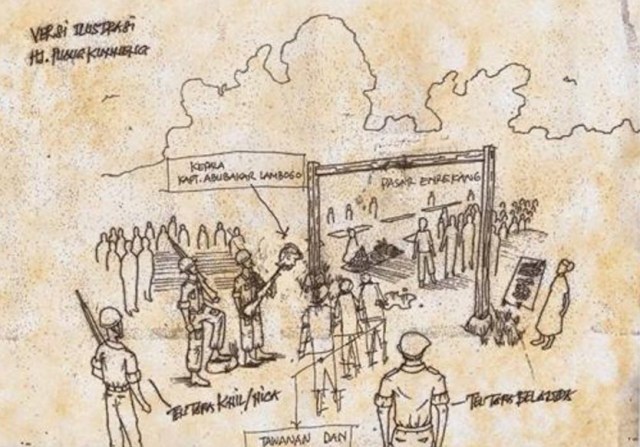 VERSI ILUSTRASI
HJ. PUANG KUNNENG
KEPALA
KAPT. ABUBAKAR LAMBOGO
PASAR ENREKANG
TENTARA KNIL/NICA
TENTARA BELANDA
TAWANAN DAN